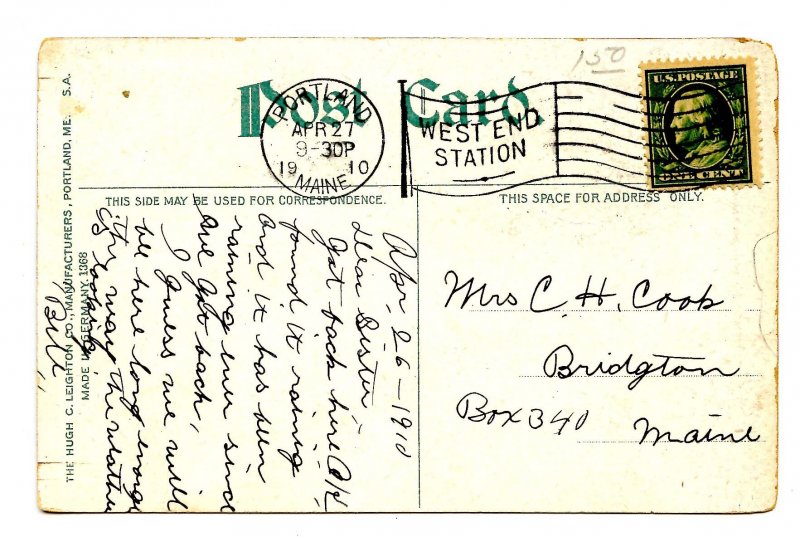 150
Post Card.
PORTLAND
APR 27
9-30P
19 10
MAINE
WEST END
STATION
U.S. POSTAGE
ONE CENT
THIS SIDE MAY BE USED FOR CORRESPONDENCE.
THIS SPACE FOR ADDRESS ONLY.
Apr. 26-1910
Dear Sister
Got back here O.K.
found it raining
and it has been
raining ever since
we got back,
I guess we will
be here long enough
the way the weather
is
Bill
Mrs C. H. Cook
Bridgton
Box 340
Maine
THE HUGH C. LEIGHTON CO., MANUFACTURERS, PORTLAND, ME. U.S.A.
MADE IN GERMANY. 1368